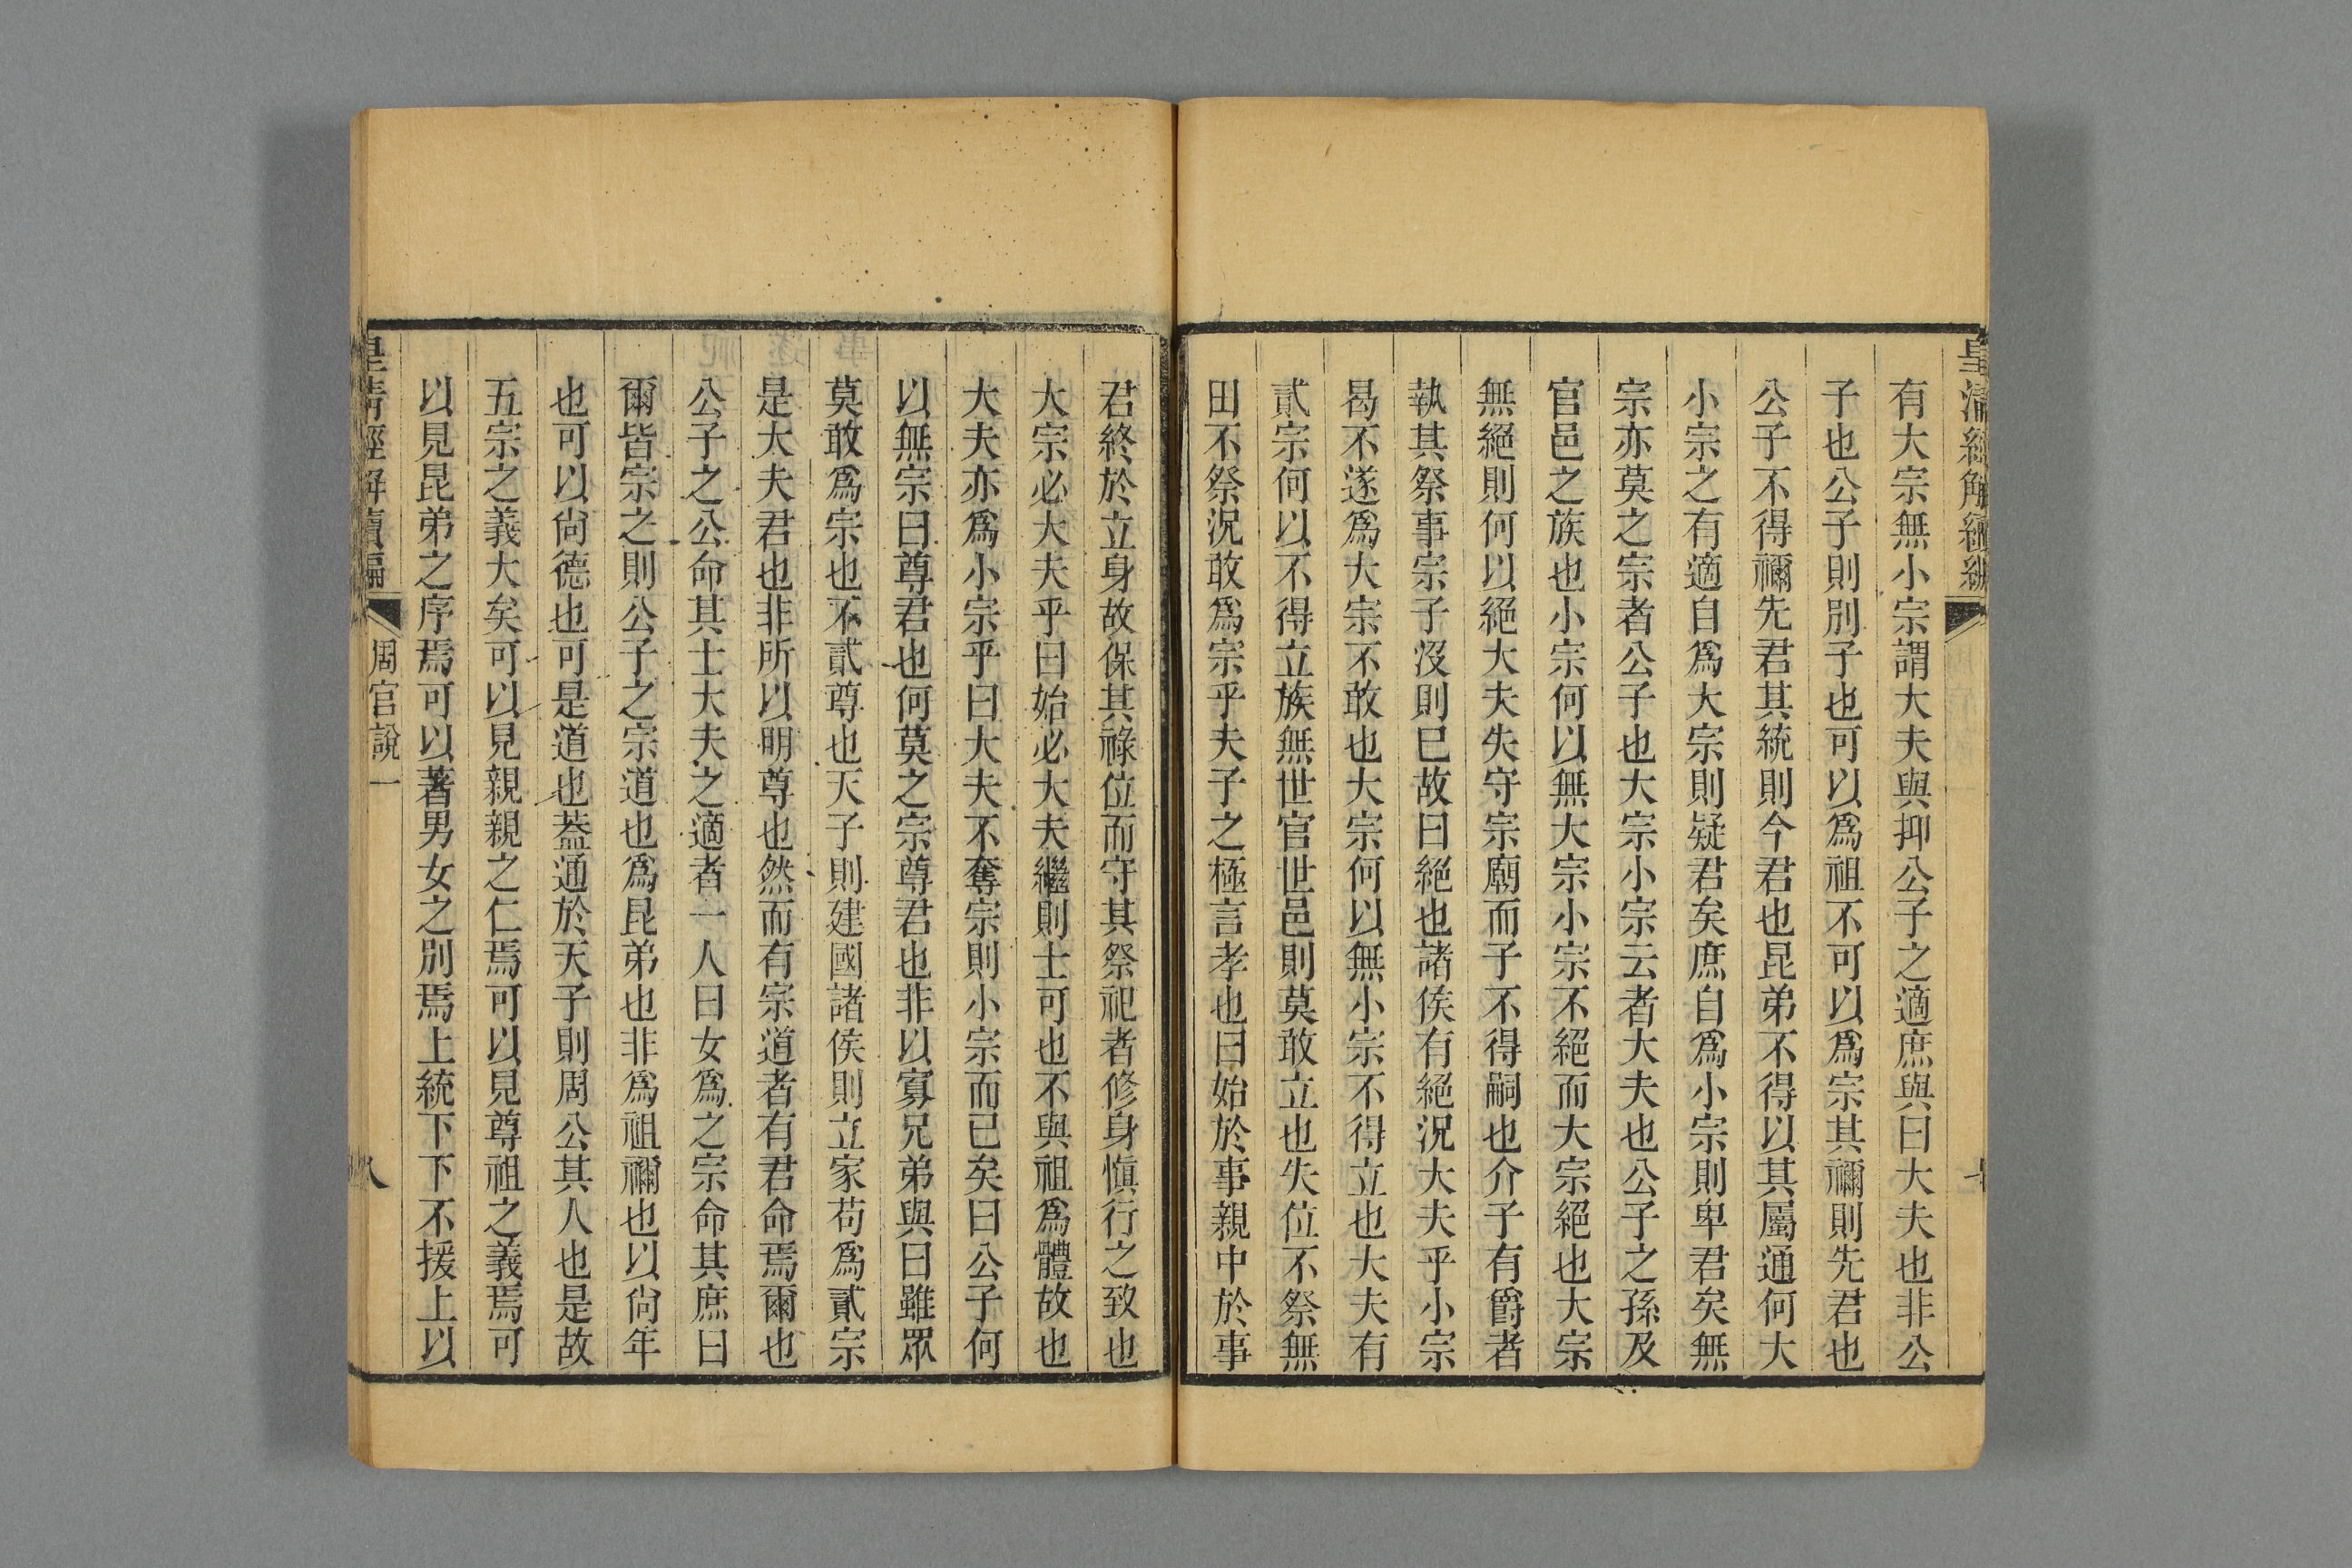 皇清經解續編
有大宗無小宗謂大夫與抑公子之適庶與曰大夫也非公
子也公子則別子也可以爲祖不可以爲宗其禰則先君也
公子不得禰先君其統則今君也昆弟不得以其屬通何大
小宗之有適自爲大宗則疑君矣庶自爲小宗則卑君矣無
宗亦莫之宗者公子也大宗小宗云者大夫也公子之孫及
官邑之族也小宗何以無大宗小宗不絕而大宗絕也大宗
無絕則何以絕大夫失守宗廟而子不得嗣也介子有爵者
執其祭事宗子沒則已故曰絕也諸侯有絕況大夫乎小宗
曷不遂爲大宗不敢也大宗何以無小宗不得立也大夫有
貳宗何以不得立族無世官世邑則莫敢立也失位不祭無
田不祭況敢爲宗乎夫子之極言孝也曰始於事親中於事
君終於立身故保其祿位而守其祭祀者修身愼行之致也
大宗必大夫乎曰始必大夫繼則士可也不與祖爲體故也
大夫亦爲小宗乎曰大夫不奪宗則小宗而已矣曰公子何
以無宗曰尊君也何莫之宗尊君也非以寡兄弟與曰雖眾
莫敢爲宗也不貳尊也天子則建國諸侯則立家苟爲貳宗
是大夫君也非所以明尊也然而有宗道者有君命焉爾也
公子之公命其士大夫之適者一人曰女爲之宗命其庶曰
爾皆宗之則公子之宗道也爲昆弟也非爲祖禰也以尙年
也可以尙德也可是道也葢通於天子則周公其人也是故
五宗之義大矣可以見親親之仁焉可以見尊祖之義焉可
以見昆弟之序焉可以著男女之別焉上統下下不援上以
皇清經解續編
周官說一
八